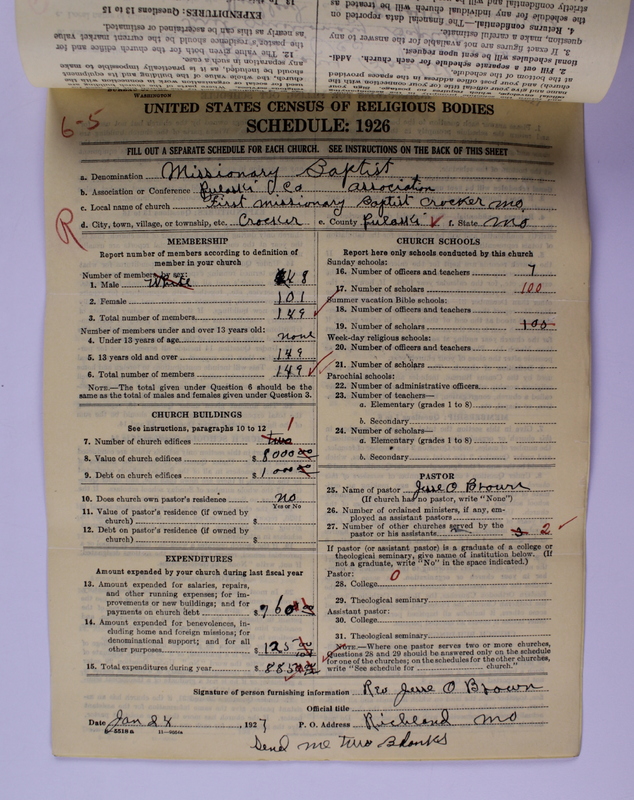 strictly confidential and will
the schedule for any individual church will be treated as
4. Returns confidential.—The financial data reported on
question, make a careful estimate.
3. If exact figures are not available for the answer to any
tional schedules will be sent upon request.
2. Fill out a separate schedule for each church. Addi-
at the bottom of the schedule.
EXPENDITURES: Questions 13 to 15
as nearly as this can be ascertained or estimated.
the pastor's residence should be the current market value
12. The value given both for the church edifice and for
any separation in such a case.
should be included, as it is practically impossible to make
church, the whole value of the building and its equipment
WASHINGTON
UNITED STATES CENSUS OF RELIGIOUS BODIES
6-5
SCHEDULE: 1926
FILL OUT A SEPARATE SCHEDULE FOR EACH CHURCH. SEE INSTRUCTIONS ON THE BACK OF THIS SHEET
a. Denomination Missionary Baptist
b. Association or Conference Pulaski Co association
c. Local name of church First Missionary Baptist Crocker Mo.
R
d. City, town, village, or township, etc. Crocker e. County Pulaski f. State Mo
MEMBERSHIP
Report number of members according to definition of
member in your church
Number of members by sex:
White
1. Male 48
2. Female 101
3. Total number of members 149
Number of members under and over 13 years old:
4. Under 13 years of age none
5. 13 years old and over 149
6. Total number of members 149
NOTE.—The total given under Question 6 should be the
same as the total of males and females given under Question 3.
CHURCH BUILDINGS
See instructions, paragraphs 10 to 12
1
7. Number of church edifices two
8. Value of church edifices $ 8000
9. Debt on church edifices $ 1000
10. Does church own pastor's residence? no
Yes or No
11. Value of pastor's residence (if owned by
church) $
12. Debt on pastor's residence (if owned by
church) $
EXPENDITURES
Amount expended by your church during last fiscal year
13. Amount expended for salaries, repairs,
and other running expenses; for im-
provements or new buildings; and for
payments on church debt $ 760
14. Amount expended for benevolences, in-
cluding home and foreign missions; for
denominational support; and for all
other purposes $ 125
15. Total expenditures during year $ 885
CHURCH SCHOOLS
Report here only schools conducted by this church
Sunday schools:
16. Number of officers and teachers 7
17. Number of scholars 100
Summer vacation Bible schools:
18. Number of officers and teachers
19. Number of scholars 100
Week-day religious schools:
20. Number of officers and teachers
21. Number of scholars
Parochial schools:
22. Number of administrative officers
23. Number of teachers—
a. Elementary (grades 1 to 8)
b. Secondary
24. Number of scholars—
a. Elementary (grades 1 to 8)
b. Secondary
PASTOR
25. Name of pastor Jesse O Brown
(If church has no pastor, write "None")
26. Number of ordained ministers, if any, em-
ployed as assistant pastors
27. Number of other churches served by the
pastor or his assistants 3 2
If pastor (or assistant pastor) is a graduate of a college or
theological seminary, give name of institution below. (If
not a graduate, write "No" in the space indicated.)
Pastor: 0
28. College
29. Theological seminary
Assistant pastor:
30. College
31. Theological seminary
NOTE.—Where one pastor serves two or more churches,
Questions 28 and 29 should be answered only on the schedule
for one of the churches; on the schedules for the other churches,
write "See schedule for church."
Signature of person furnishing information Rev Jesse O Brown
Official title
Date Jan 24, 1927 P. O. Address Richland Mo
Send me two Blanks